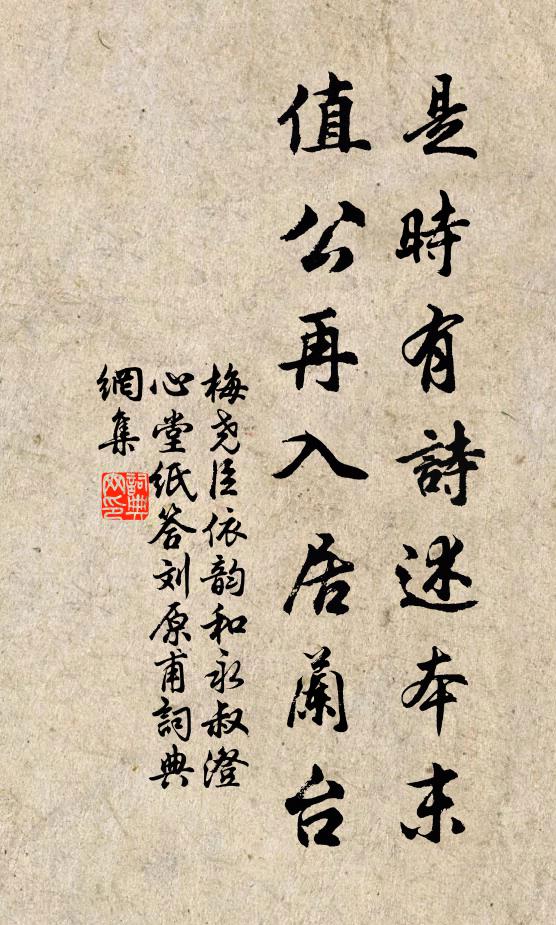 是時有詩述本末
值公再入居蘭台
梅尧臣依韵和永叔澄
心堂紙答刘原甫詞典
網集
詞典
网印